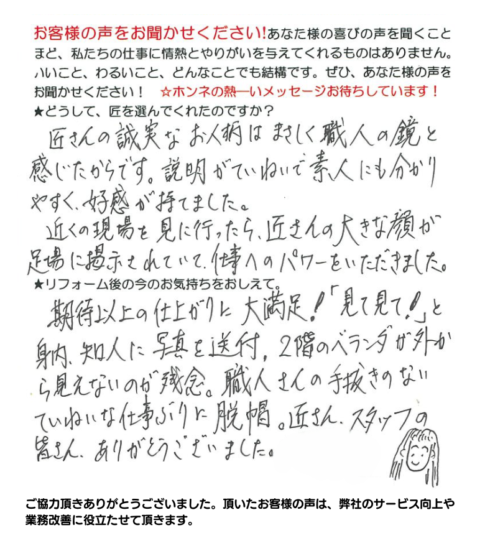 お客様の声をお聞かせください!あなた様の喜びの声を聞くこと
ほど、私たちの仕事に情熱とやりがいを与えてくれるものはありません。
いいこと、わるいこと、どんなことでも結構です。ぜひ、あなた様の声を
お聞かせください！ ☆ホンネの熱ーいメッセージお待ちしています！
★どうして、匠を選んでくれたのですか？
匠さんの誠実なお人柄はまさしく職人の鏡と
感じたからです。説明がていねいで素人にも分かり
やすく、好感が持てました。
近くの現場を見に行ったら、匠さんの大きな顔が
足場に掲示されていて、仕事へのパワーをいただきました。
★リフォーム後の今のお気持ちをおしえて。
期待以上の仕上がりに大満足！「見て見て！」と
身内、知人に写真を送付。2階のベランダが外か
ら見えないのが残念。職人さんの手抜きのない
ていねいな仕事ぶりに脱帽。匠さん、スタッフの
皆さん、ありがとうございました。
ご協力頂きありがとうございました。頂いたお客様の声は、弊社のサービス向上や
業務改善に役立たせて頂きます。